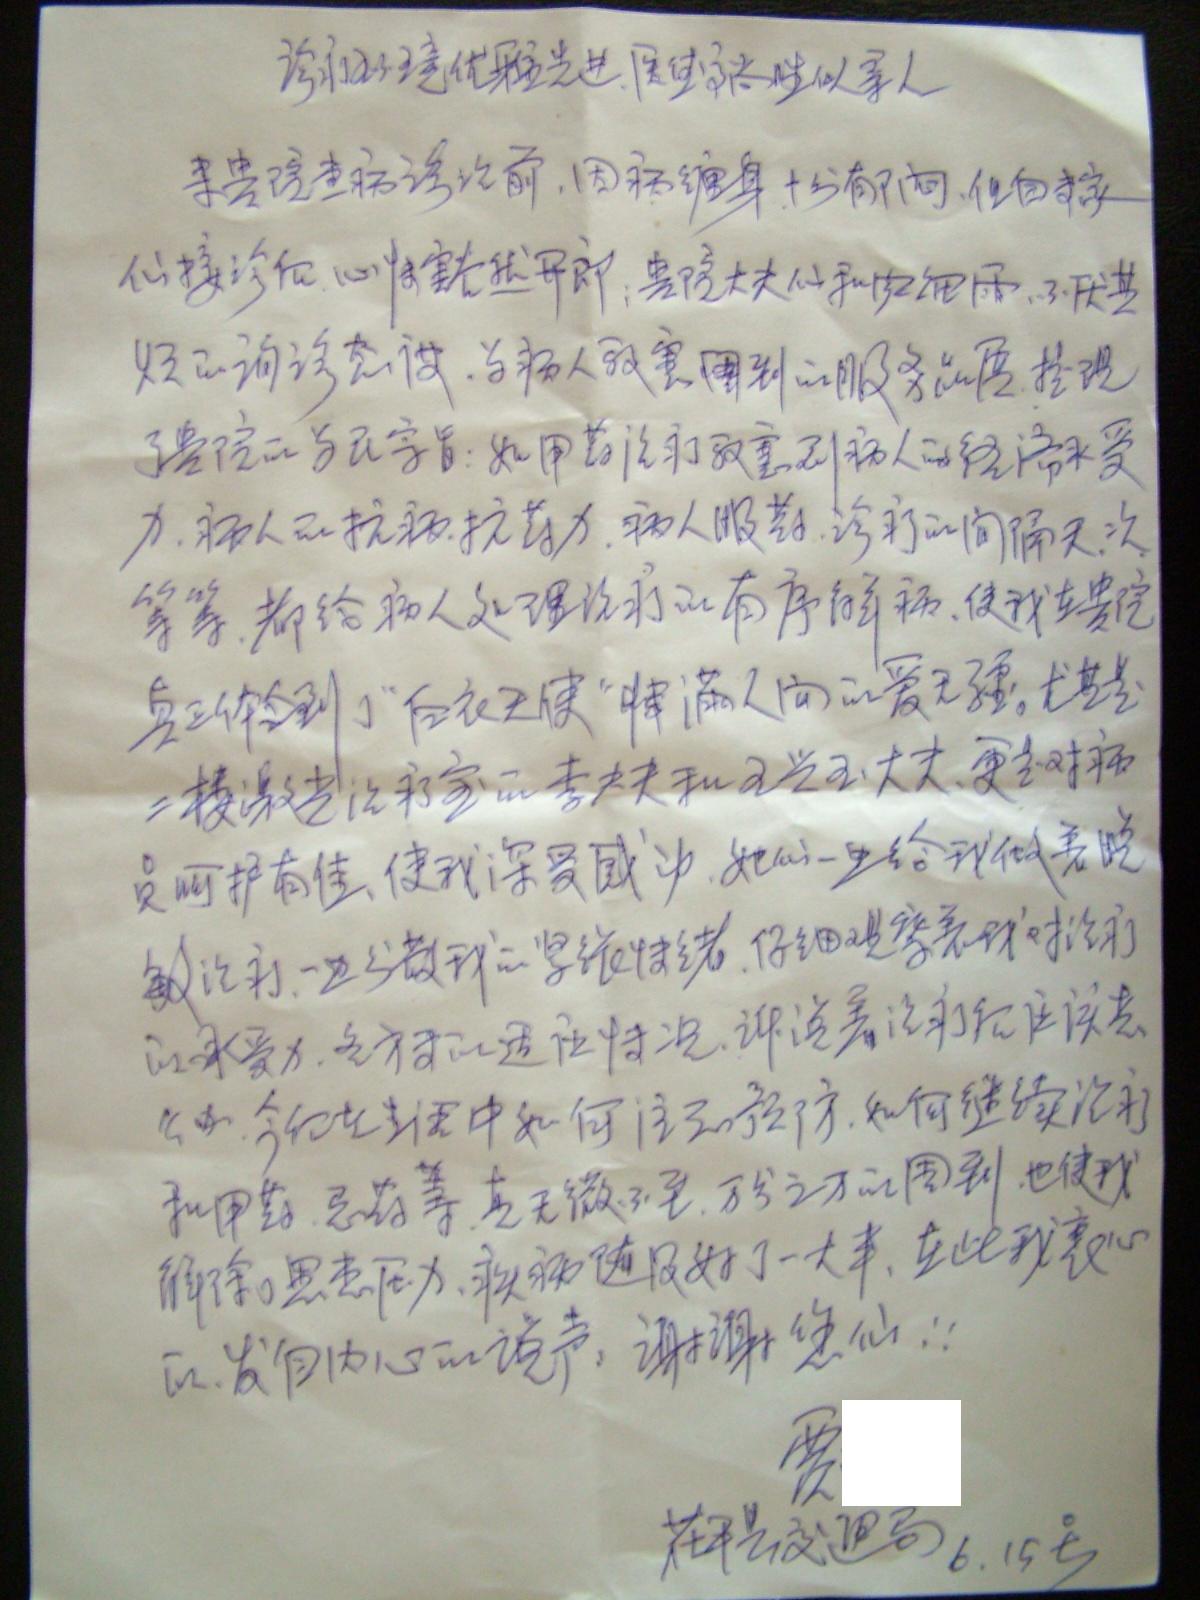 诊疗环境优雅先进、医德高尚胜似亲人
来贵院查病诊治前、因病缠身、十分郁闷、但自专家
们接诊后、心情豁然开郎；贵院大夫们和风细雨、不厌其
烦的询诊态度、与病人致意周到的服务品质、体现
了贵院的为民宗旨：如用药治疗致意到病人的经济承受
力、病人的抗病、抗药力、病人服药、诊疗的间隔天、次
等等、都给病人处理治疗的有序解病、使我在贵院
真正体会到了"白衣天使"情满人间的爱无疆。尤其是
二楼激光治疗室的李大夫和王兴玉大夫、更是对病
员呵护有佳、使我深受感动、她们一边给我做着脱
敏治疗、一边分散我的紧张情绪、仔细观察着我对治疗
的承受力、各方面的适应情况、讲说着治疗后应该怎
么办、今后在生活中如何注意预防、如何继续治疗
和用药、忌药等、真无微不至、万分之万的周到、也使我
解除了思想压力、疾病随及好了一大半、在此我衷心
的、发自内心的说声：谢谢您们!!
贾
茌平县交通局 6.15号